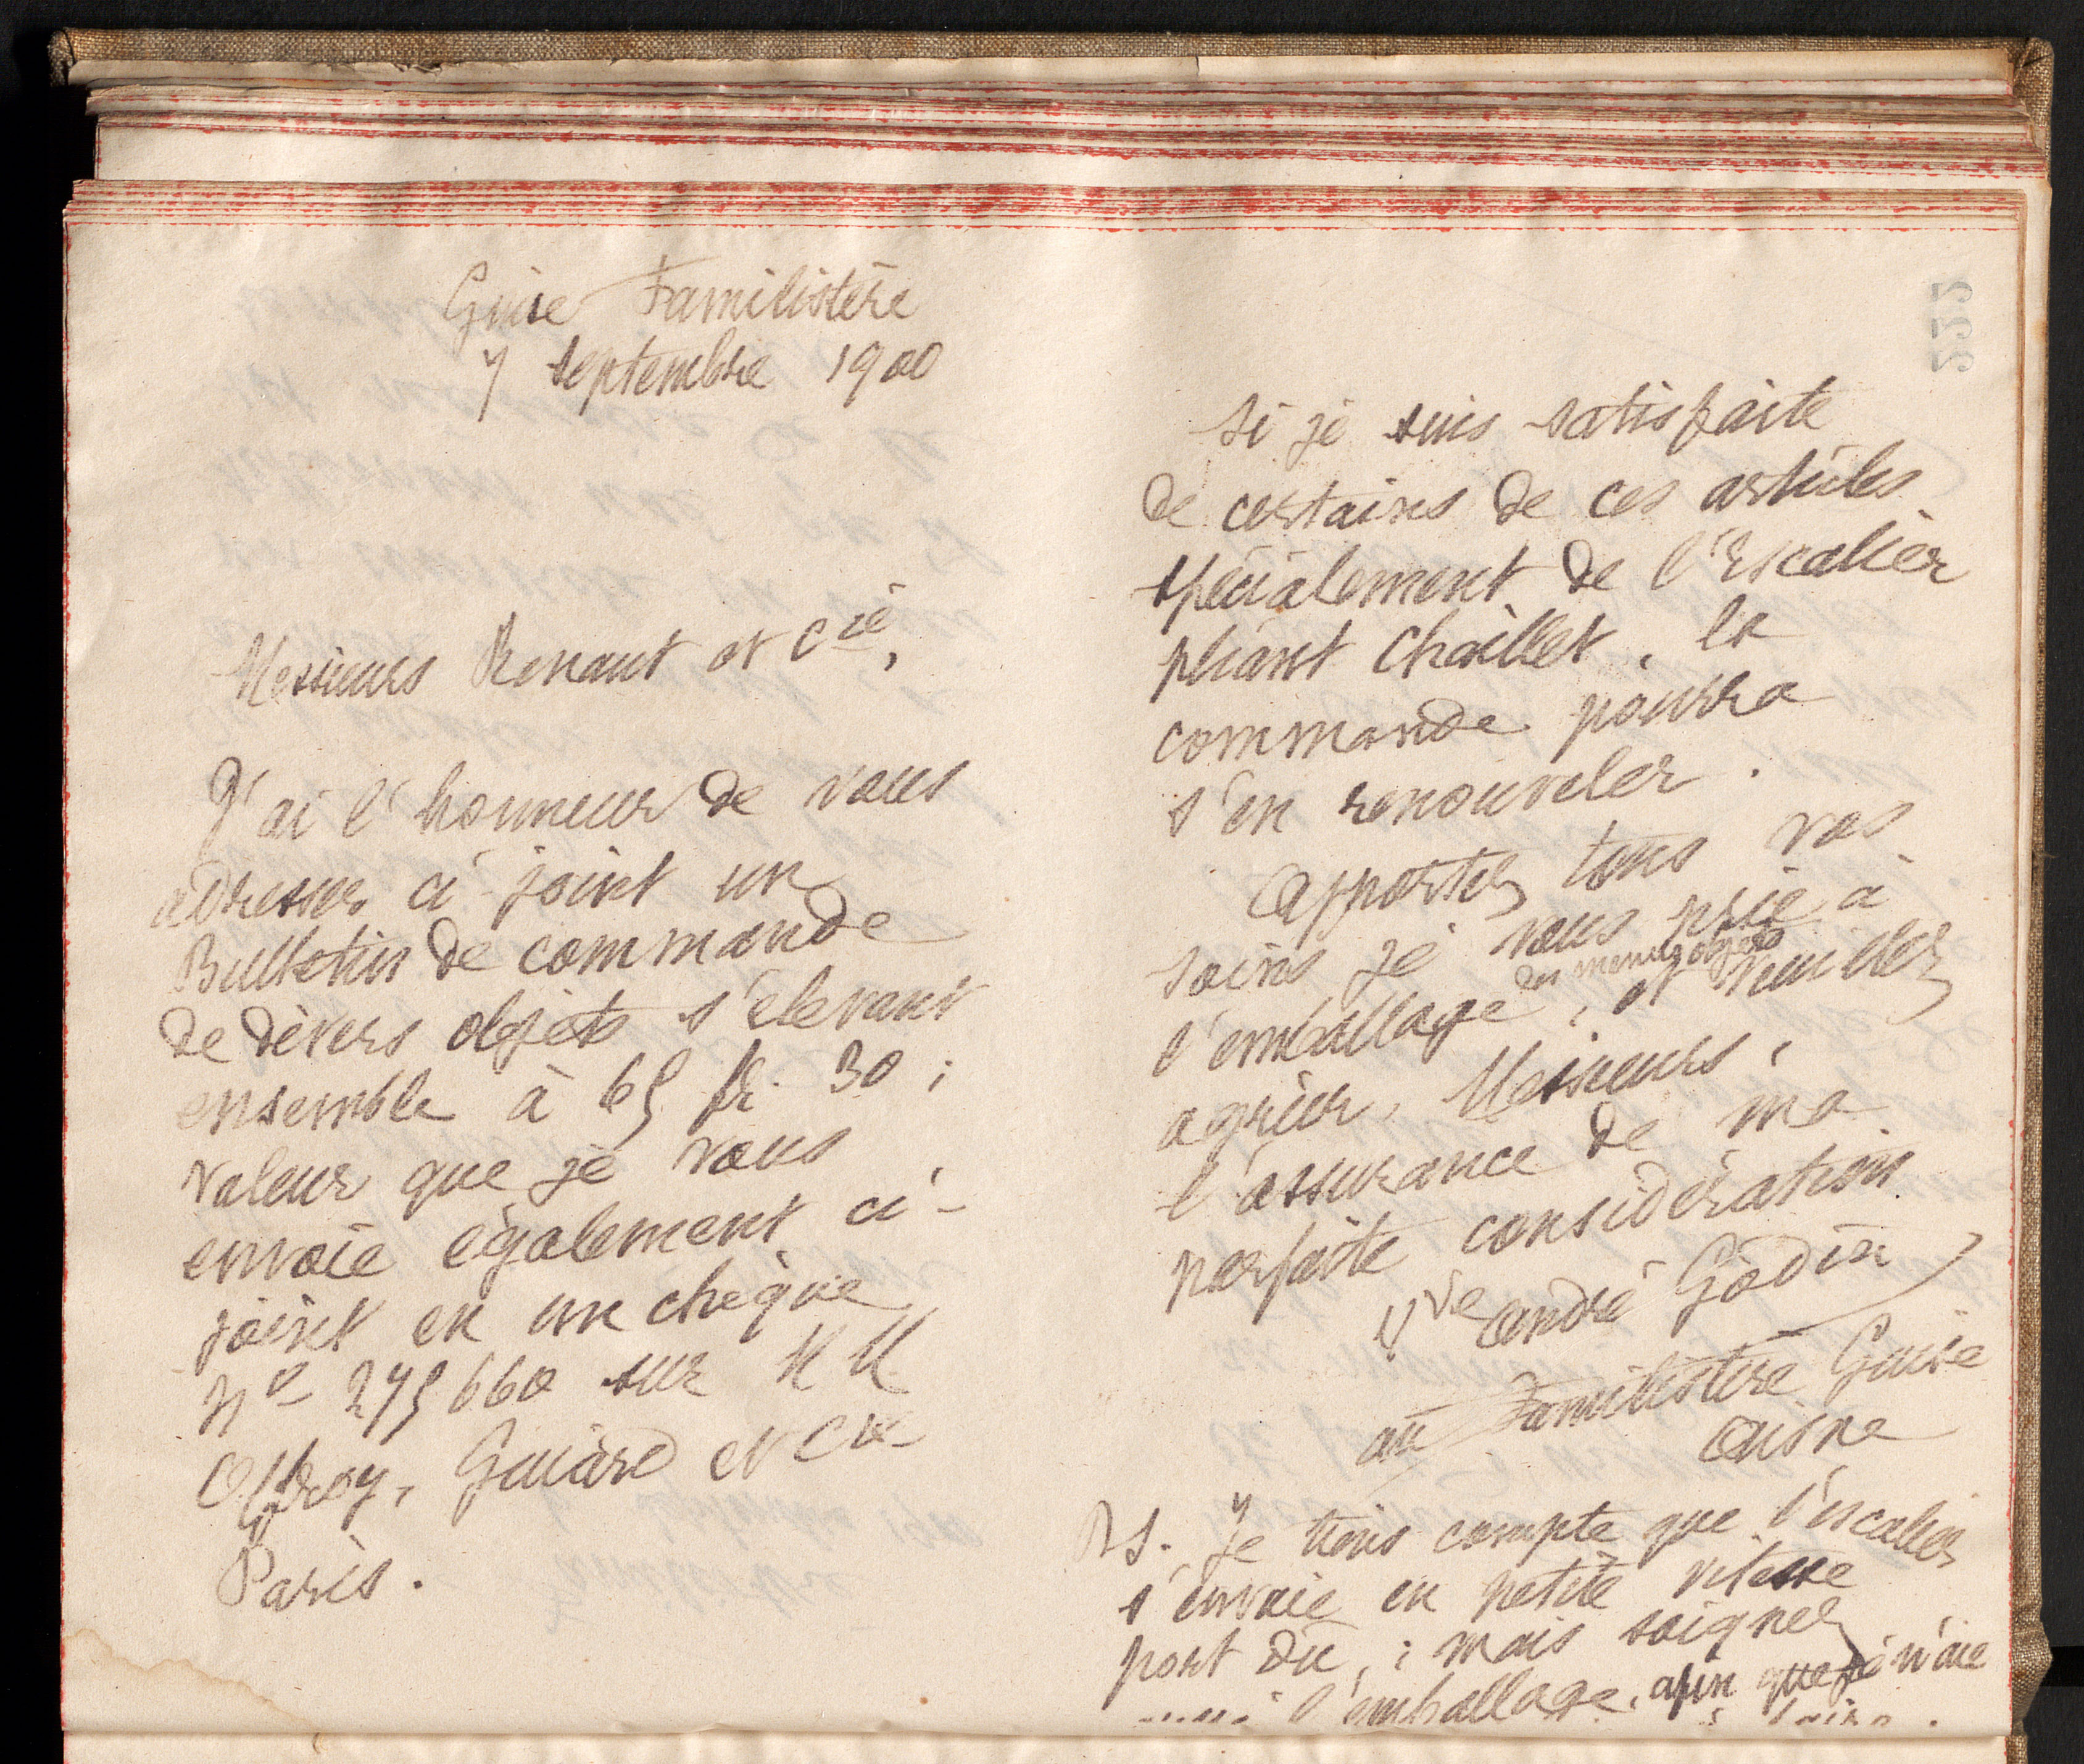 Guise Familistère
7 septembre 1900
Messieurs Renaut et Cie,
J'ai l'honneur de vous
adresser ci-joint un
Bulletin de commande
de divers objets s'élevant
ensemble à 65 fr. 30 ;
valeur que je vous
envoie également ci-
joint en un chèque
No 275660 sur MM
Offroy, Guiard et Cie
Paris.
222
Si je suis satisfaite
de certains de ces articles
spécialement de l'Escalier
pliant Chaillet, la
commande pourra
s'en renouveler.
Apportez tous vos
soins je vous prie à
l'emballage des menus objets, et veuillez
agréer, Messieurs,
l'assurance de ma
parfaite considération
Vve André Godin
au Familistère Guise
Aisne
PS. Je tiens compte que l'escalier
s'envoie en petite vitesse
port dû ; mais soignez
l'emballage, afin que je n'aie